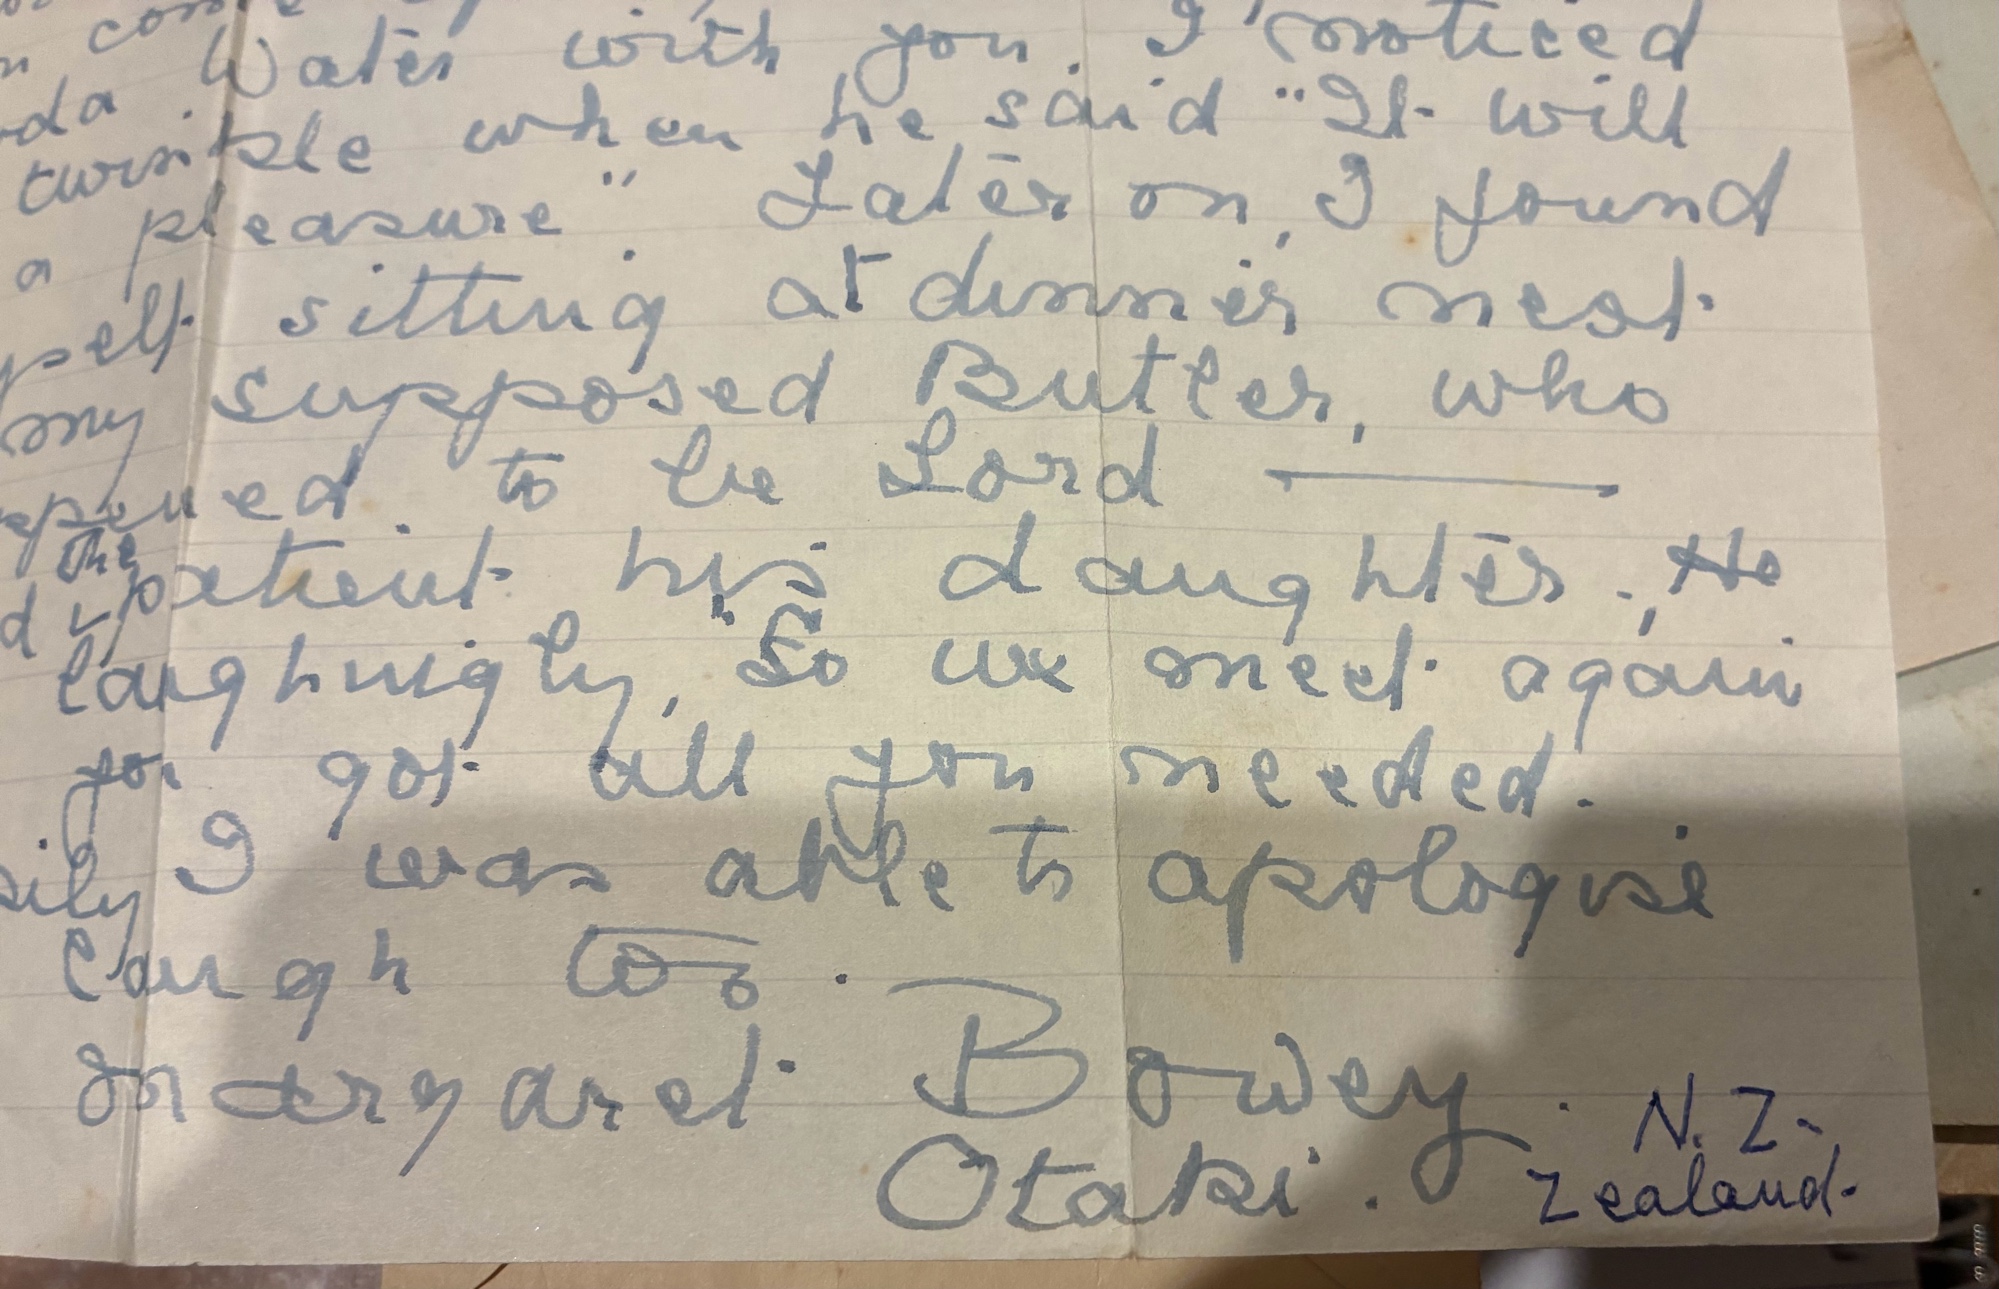 Water with you. I noticed
twinkle when he said "It will
a pleasure". Later on, I found
sitting at dinner next
my supposed Butler, who
to be Lord ———
the
patient his daughter. He
laughingly, "So we meet again
you got all you needed.
I was able to apologise
laugh too.
Margaret Bowey.
N. Z.
Otaki. Zealand.